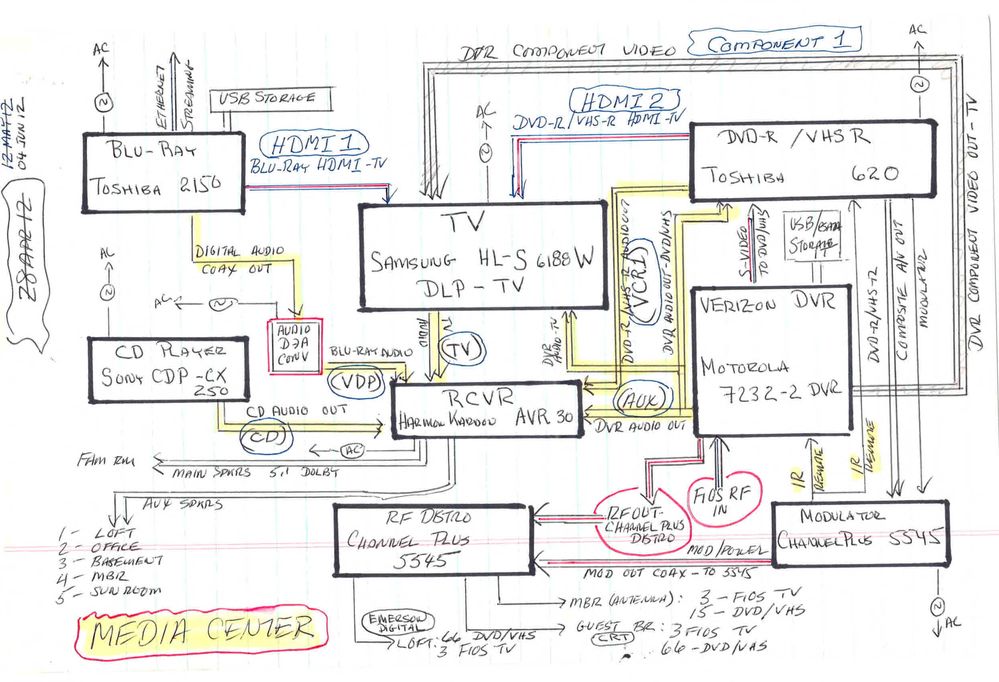 AC
ETHERNET
STREAMING
USB STORAGE
BLU-RAY
TOSHIBA 2150
HDMI 1
BLU-RAY HDMI-TV
DVR COMPONENT VIDEO
COMPONENT 1
HDMI 2
DVD-R/VHS-R HDMI-TV
AC
AC
DVD-R/VHSR
TOSHIBA 620
12 MAY 12
04 JUN 12
28 APR 12
DIGITAL AUDIO
COAX OUT
TV
SAMSUNG HL-S 6188W
DLP-TV
DVD-R/VHS-R AUDIO OUT
VCR1
DVR AUDIO OUT-DVD/VHS
S-VIDEO
TO DVD/VHS
STORAGE
DVD-R/VHS-R
COMPOSITE A/V OUT
MODULATOR
DVR COMPONENT VIDEO OUT-TV
AC
AC
AUDIO
D2A
CONV
BLU-RAY AUDIO
VDP
TV
AUDIO
TV
DVR
AUDIO-TV
CD PLAYER
SONY CDP-CX
250
CD AUDIO OUT
CD
RCVR
HARMON KARDON AVR 30
AUX
DVR AUDIO OUT
VERIZON DVR
MOTOROLA
7232-2 DVR
AC
FAM RM
MAIN SPKRS 5.1 DOLBY
AUX SPKRS
1 - LOFT
2 - OFFICE
3 - BASEMENT
4 - MBR
5 - SUN ROOM
RF DISTRO
CHANNEL PLUS
5545
RF OUT-
CHANNEL PLUS
DISTRO
FIOS RF
IN
IR
REMOTE
IR
REMOTE
MODULATOR
CHANNEL PLUS 5545
MOD/POWER
MOD OUT COAX-TO 5545
AC
MBR (ANTENNA): 3 - FIOS TV
15 - DVD/VHS
GUEST BR: 3 FIOS TV
CRT
66 - DVD/VHS
EMERSON
DIGITAL
LOFT: 66 DVD/VHS
3 FIOS TV
MEDIA CENTER